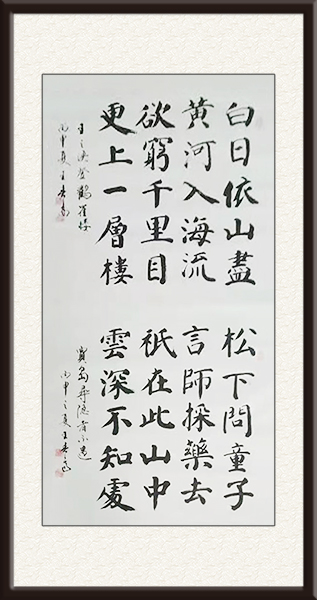 白日依山盡
黄河入海流
欲窮千里目
更上一層樓
王之渙登鸛雀樓
丙申夏王
松下問童子
言師採藥去
祇在此山中
雲深不知處
賈島尋隱者不遇
丙申之夏王